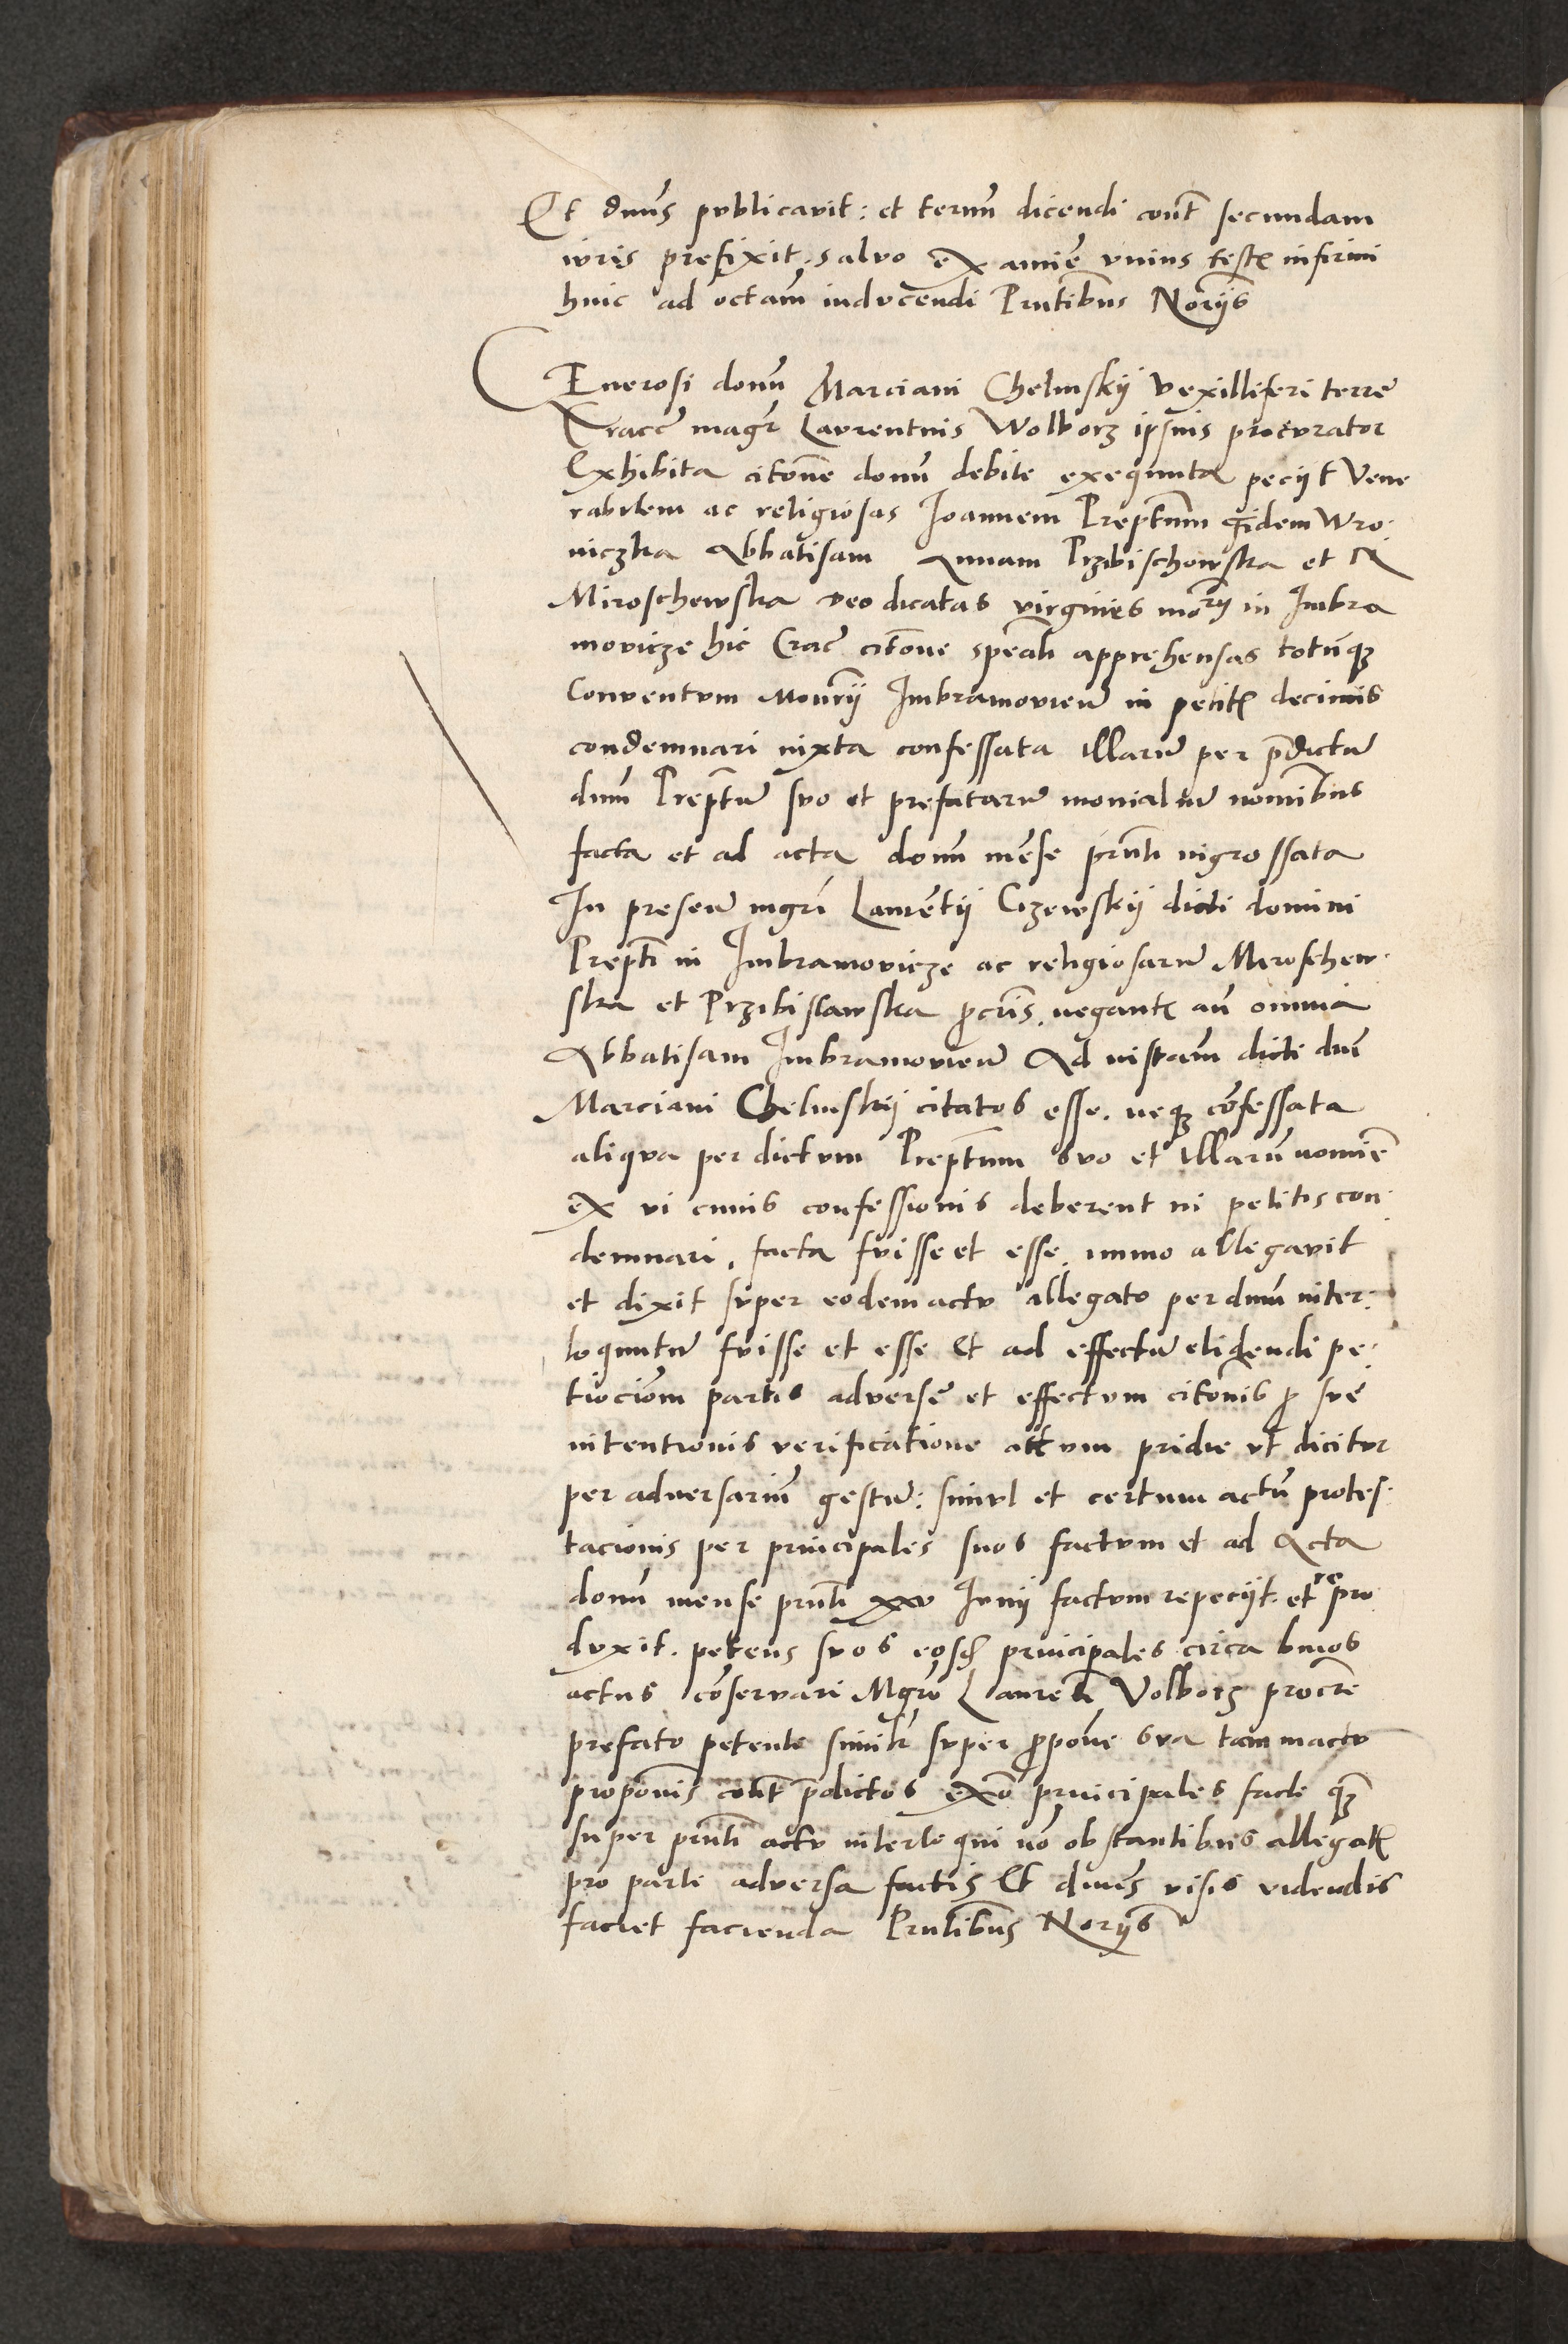 Et dnus publicavit: et termm dicendi cont secundam
iuris prefixit, salvo examie unius testis infirmi
huic ad octam inducendi Pntibus Noriis
Generosi domi Marciani Chelmskij vexilliferi terre
Cracc magr Laurentius Wolborz ipsius procurator
Exhibita citone domi debite exequuta peciit Vene
rabilem ac religiosas Joannem Preptum quidem Wro.
niczka Abbatisam Annam Przibischowska et N
Miroschewska deo dicatas virgines mory in Imbra
movicze hic Crac citone speali apprehensas totuque
Conventum Monrii Imbramovien in petitis decimis
condemnari iuxta confessata illarum per pdictum
dnm Preptum suo et prefatarum monialium nominibus
facta et ad acta domi mense pnti ingrossata
In presen mgri Laurentii Czewskij dicti domini
Prepti in Imbramovicze ac religiosarum Miroschew.
ska et Przibislawska pcuris. negantis an omnia
Abbatisam Imbramovien Ad instam dicti dni
Marciani Chelmskij citatos esse. neque confessata
aliqua per dictum Preptum suo et illarum nomie
ex vi cuius confessionis deberent in petitis con
demnari, facta fuisse et esse, immo allegavit
et dixit super eodem actu allegato per dnum inter.
loquutum fuisse et esse Et ad effectum elidendi pe.
ticiom partis adverse et effectum citonis p sue
intentionis verificatione actum pridie ut dicitur
per adversarium gestum: simul et certum actum protes.
tacionis per principales suos factum et ad Acta
domi mense pnti xxv Junij factum repeciit. et repro
duxit. petens suos eosdem principales circa hmos
actus conservari Mgro Laurenti Volborz procre
prefato petente simili super ppone sua tam in actu
proponis cont pdictos exo principales facte quam
super pnti actu interloqui no obstantibus allegatis
pro parte adversa factis Et dnus visis videndis
faciet facienda Pntibus Noriis